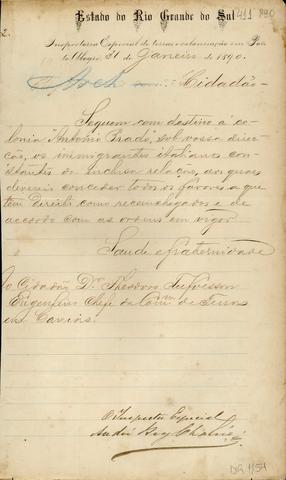 Estado do Rio Grande do Sul
411 890
2.
Inspectoria Especial de terras e colonisação em Por-
to Alegre, 21 de Janeiro de 1890.
Arch
Cidadão
Seguem com destino á co-
lonia "Antonio Prado", sob vossa direc-
ção, os immigrantes italianos cons-
tantes da inclusa relação, aos quaes
devereis conceder todos os favores a que
tem direito como recemchegados e de
accordo com as ordens em vigor.
Saude e fraternidade
Ao Cidadão Dr. Theodoro
Engenheiro Chefe da Comm. de Terras
em Caxias.
O Inspector Especial
DG 1154